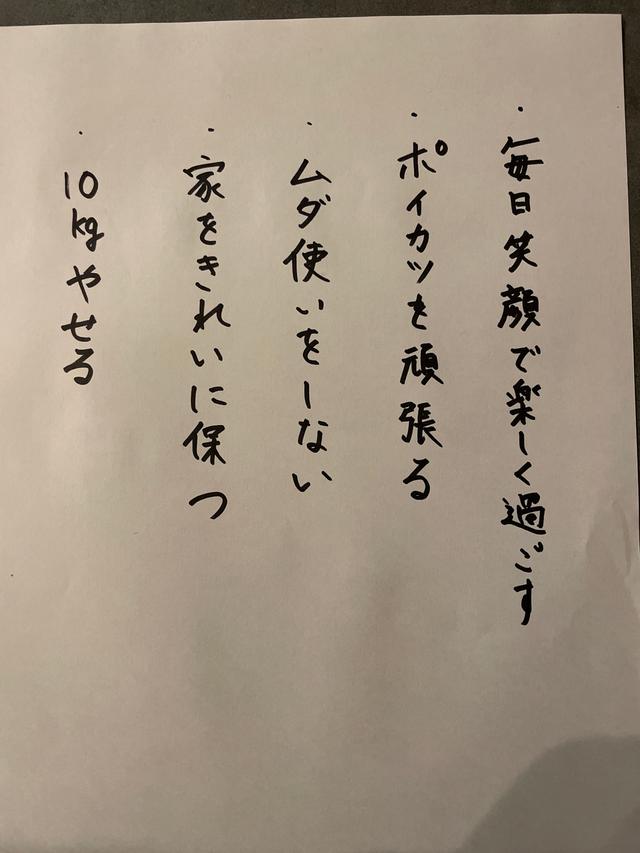 ・毎日笑顔で楽しく過ごす
・ポイカツを頑張る
・ムダ使いをしない
・家をきれいに保つ
・10kgやせる